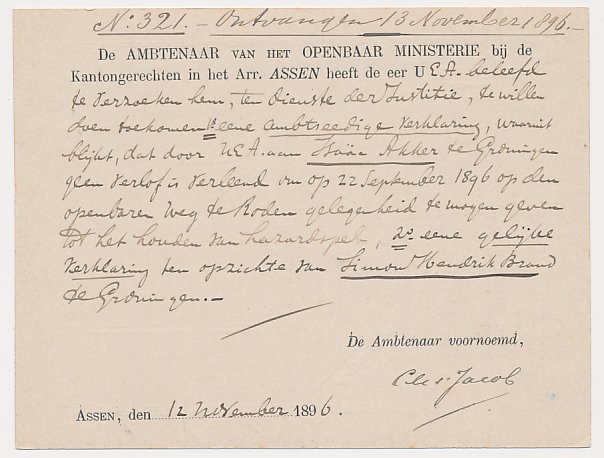 No. 321. – Ontvangen 13 November 1896. –
De AMBTENAAR VAN HET OPENBAAR MINISTERIE bij de
Kantongerechten in het Arr. ASSEN heeft de eer U E.A. beleefd
te verzoeken hem, ten dienste der Justitie, te willen
doen toekomen 1e. eene ambtseedige verklaring, waaruit
blijkt, dat door U E.A. aan Isaäc Akker te Groningen
geen verlof is verleend om op 22 September 1896 op den
openbaren weg te Roden gelegenheid te mogen geven
tot het houden van hazardspel, 2o. eene gelijke
verklaring ten opzichte van Simon Hendrik Brand
te Groningen. –
De Ambtenaar voornoemd,
Jacob
ASSEN, den 12 November 1896.